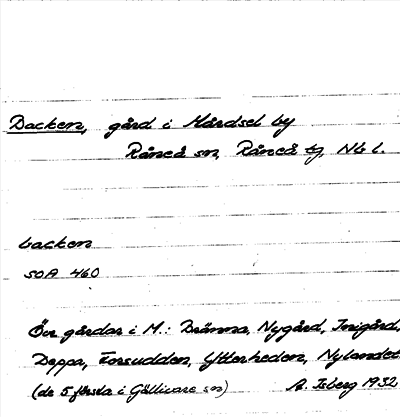 Backen, gård i Mårdsel by
Råneå sn, Råneå tg, Nb l.
backen
SOA 460
Övr gårdar i M.: Bränna, Nygård, Inigård,
Deppa, Forsudden, Ytterheden, Nylandet
(de 5 första i Gällivare sn) A. Isberg 1932